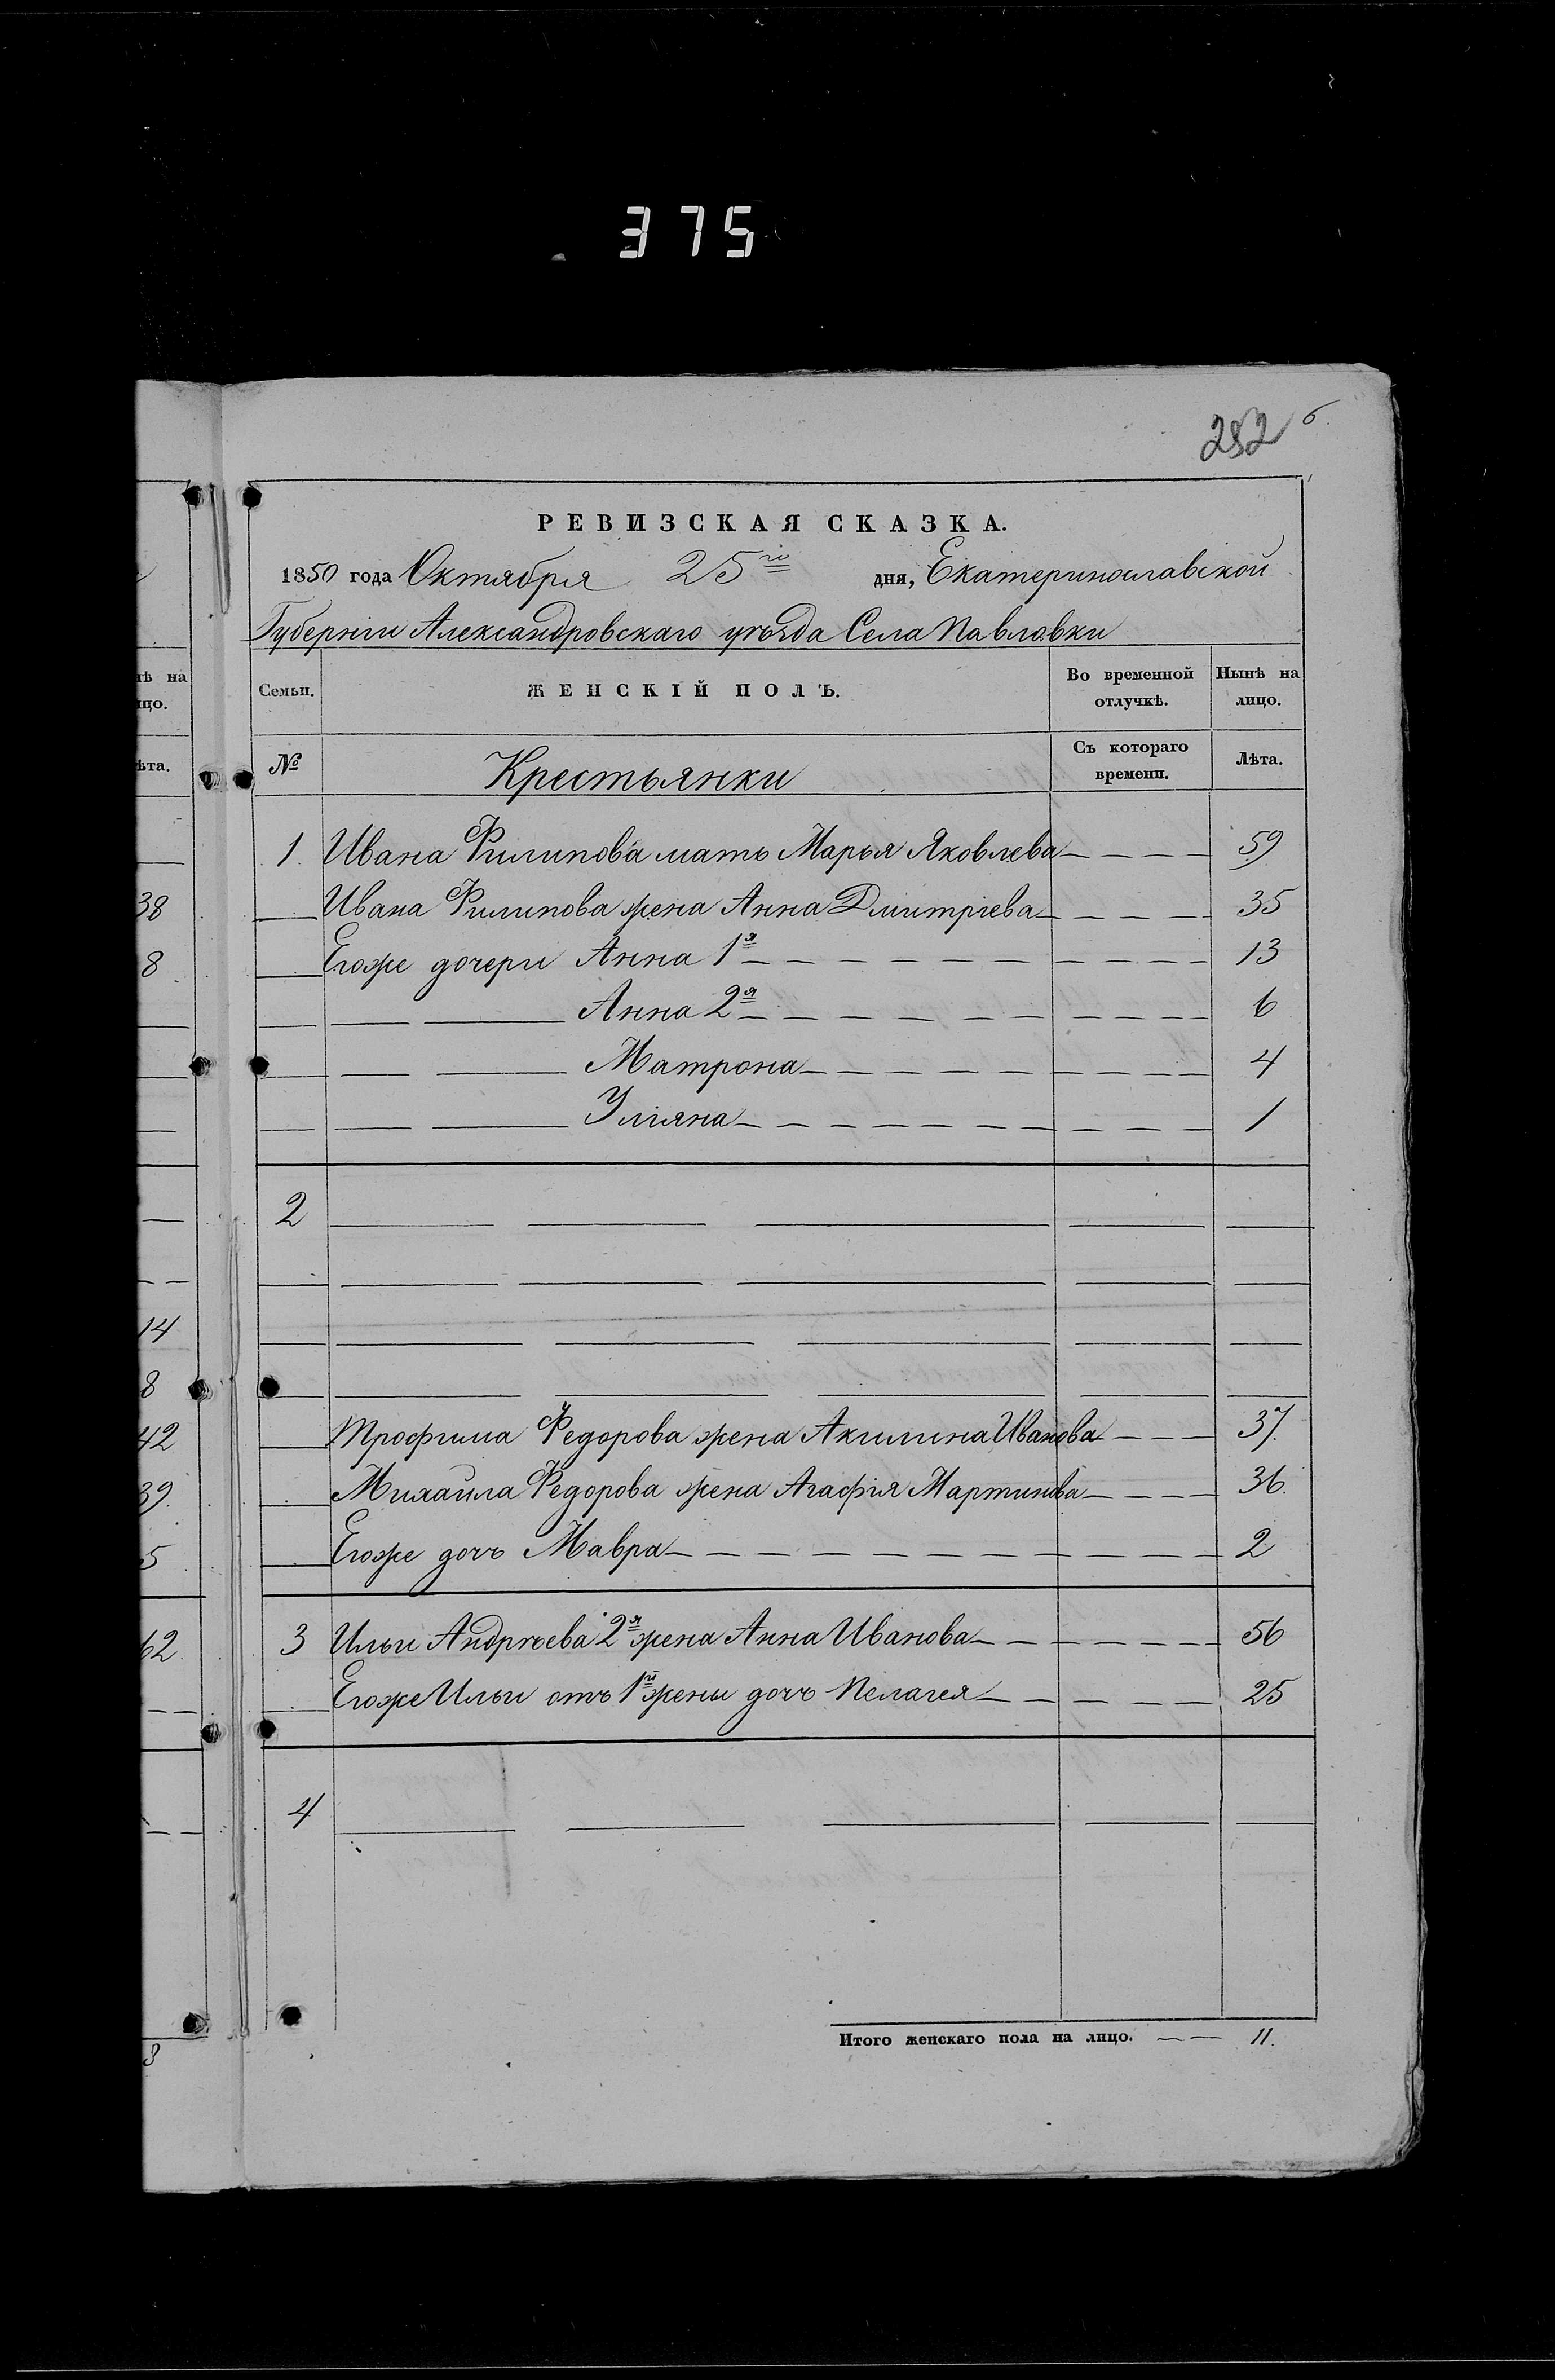 375
282 б.
РЕВИЗСКАЯ СКАЗКА.
1850 года Октября 25го дня, Екатеринославской
Губернии Александровскаго уѣзда Села Павловки
Семьи. ЖЕНСКІЙ ПОЛЪ. Во временной отлучкѣ. Нынѣ на лицо.
№ Крестьянки Съ котораго времени. Лѣта.
1. Ивана Филипова мать Марья Яковлева 59
Ивана Филипова жена Анна Дмитріева 35
Егоже дочери Анна 1я 13
Анна 2я 6
Матрона 4
Улияна 1
2
Трофима Федорова жена Акилина Иванова 37.
Михаила Федорова жена Агафія Мартинова 36.
Егоже дочь Мавра 2
3 Ильи Андрѣева 2я жена Анна Иванова 56
Егоже Ильи отъ 1й жены дочь Пелагея 25
4
Итого женскаго пола на лицо. 11.
нѣ на
ицо.
ѣта.
38
8
14
8
42
39.
5
62
3